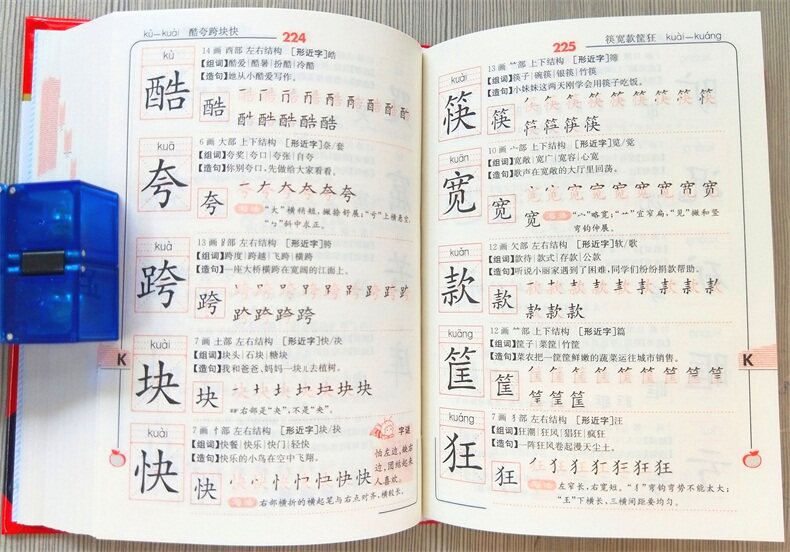 kù—kuài 酷夸跨块快
224
kù
酷
14画 酉部 左右结构 [形近字]皓
【组词】酷爱|酷暑|扮酷|冷酷
【造句】她从小酷爱写作。
酷
kuā
夸
6画 大部 上下结构 [形近字]奈/套
【组词】夸奖|夸口|夸张|自夸
【造句】你别夸口,先做给大家看看。
夸
写法 “大”横稍短,撇捺舒展;“亏”上横悬空,
“㇉”斜中求正。
kuà
跨
13画 ⻊部 左右结构 [形近字]骑
【组词】跨度|跨越|飞跨|横跨
【造句】一座大桥横跨在宽阔的江面上。
跨
kuài
块
7画 土部 左右结构 [形近字]快/决
【组词】块头|石块|糖块
【造句】我和爸爸、妈妈一块儿去植树。
块
右部是“夬”,不是“央”。
kuài
快
7画 忄部 左右结构 [形近字]块/抉
【组词】快餐|快乐|快门|轻快
【造句】快乐的小鸟在空中飞翔。
快
写法 右部横折的横起笔与右点对齐,横较长。
字谜
怕左边,缺右
边,团结起来
人喜欢。
K
225
筷宽款筐狂 kuài—kuáng
kuài
筷
13画 ⺮部 上下结构 [形近字]筛
【组词】筷子|碗筷|银筷|竹筷
【造句】小妹妹这两天刚学会用筷子吃饭。
筷
kuān
宽
10画 宀部 上下结构 [形近字]览/觉
【组词】宽敞|宽广|宽容|心宽
【造句】歌声在宽敞的大厅里回荡。
宽
写法 “宀”略宽;“艹”宜窄扁,“见”撇和竖
弯钩伸展。
kuǎn
款
12画 欠部 左右结构 [形近字]软/歌
【组词】款待|款式|存款|公款
【造句】听说小丽家遇到了困难,同学们纷纷捐款帮助。
款
kuāng
筐
12画 ⺮部 上下结构 [形近字]篇
【组词】筐子|菜筐|竹筐
【造句】菜农把一筐筐鲜嫩的蔬菜运往城市销售。
筐
kuáng
狂
7画 犭部 左右结构 [形近字]汪
【组词】狂潮|狂风|猖狂|疯狂
【造句】一阵狂风卷起漫天尘土。
狂
写法 左窄长,右宽短。“犭”弯钩弯势不能太大;
“王”下横长,三横间距要均匀。
K